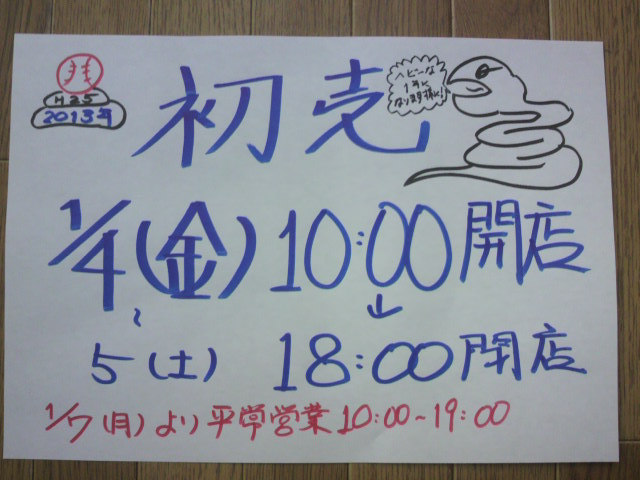 H25
2013年
初売
ヘビーな
1年に
なります様に!
1/4(金)10:00開店
~ ↓
5(土) 18:00閉店
1/7(月)より平常営業10:00~19:00